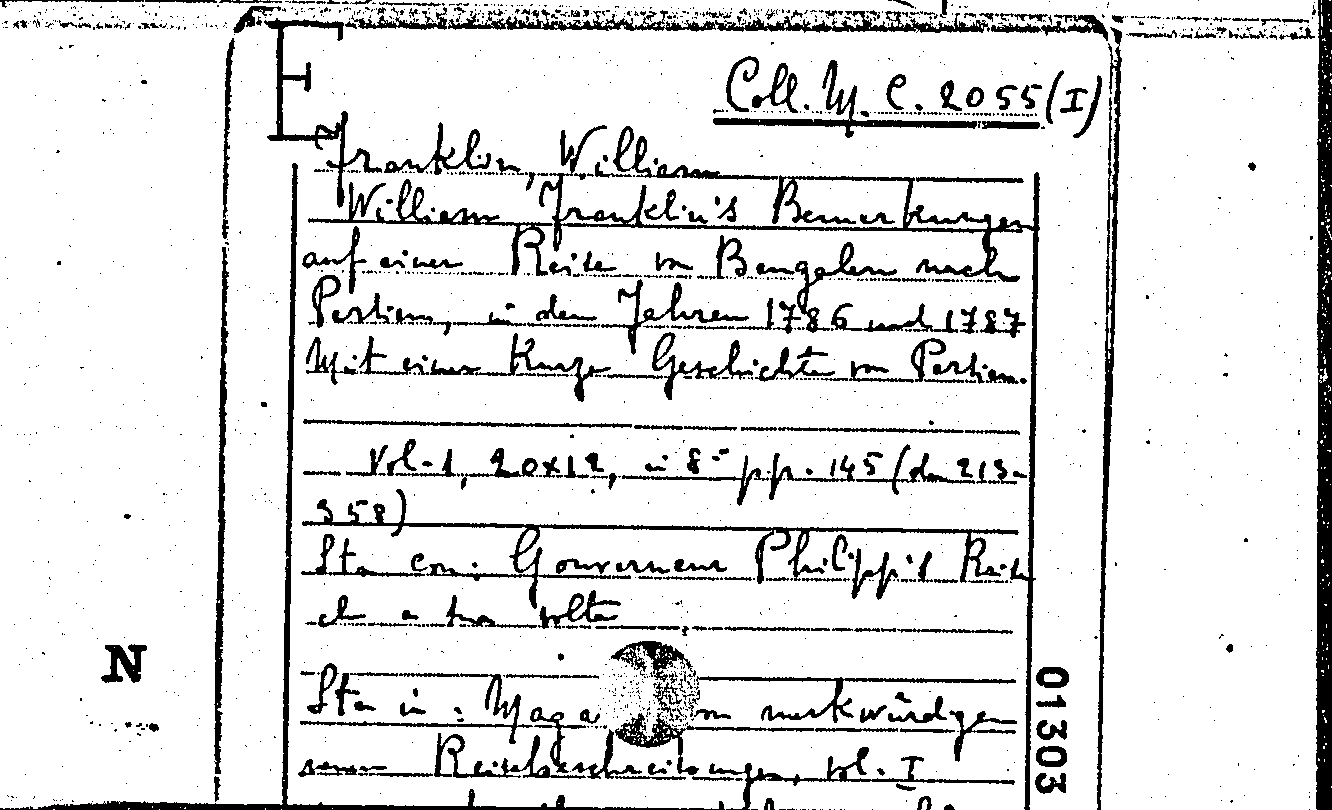 F
Coll. M. C. 2055 (I)
Franklin, William
William Franklin's Bemerkungen
auf einer Reise von Bengalen nach
Persien, in den Jahren 1786 und 1787
Mit einer Kurze Geschichte von Persien.
Vol. 1, 20x12, in 8° pp. 145 (da 213-
358)
Sta con: Gouverneur Philipp's Reise
Sta in: Maga von merkwürdigen
neuen Reisebeschreibungen, vol. I
N
01303